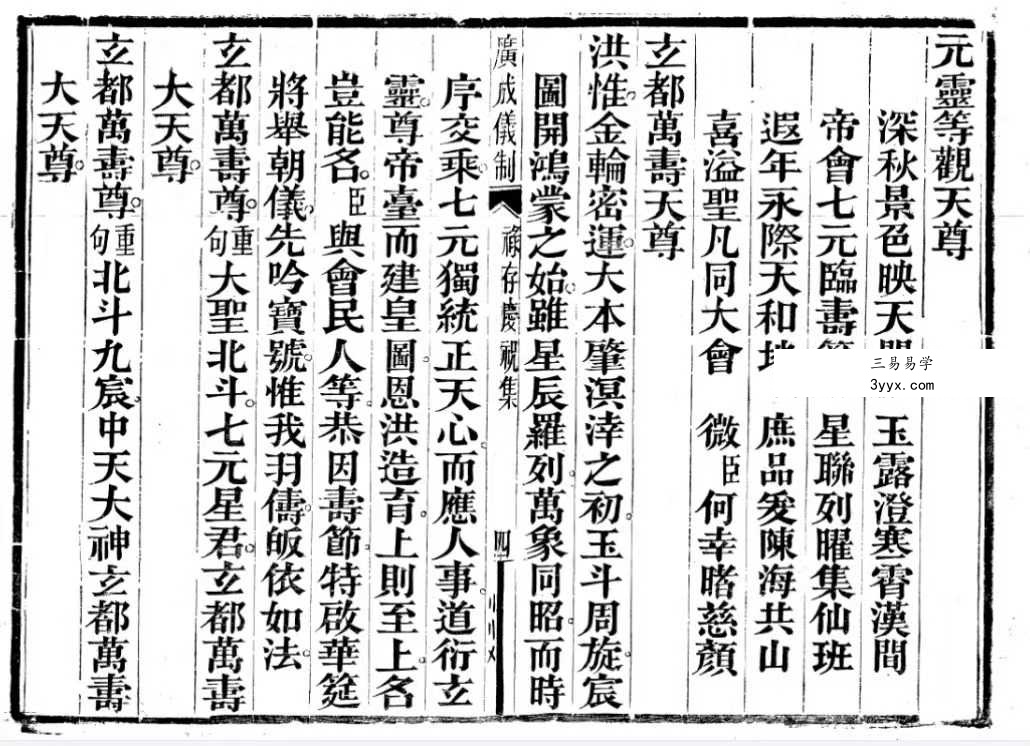 元靈等觀天尊
深秋景色映天 玉露澄寒霄漢間
帝會七元臨壽 星聯列曜集仙班
遐年永際天和 庶品爰陳海共山
喜溢聖凡同大會 微臣何幸睹慈顏
玄都萬壽天尊
洪惟金輪密運。大本肇溟涬之初。玉斗周旋。宸
圖開鴻蒙之始。雖星辰羅列。萬象同昭。而時
序交乘。七元獨統正天心。而應人事。道衍玄
靈。尊帝臺而建皇圖。恩洪造育。上則至上。名
豈能名。臣與會民人等。恭因壽節。特啟華筵
將舉朝儀。先吟寶號。惟我羽儔。皈依如法。
玄都萬壽尊。重句大聖北斗。七元星君。玄都萬壽
大天尊。
玄都萬壽尊。重句北斗九宸。中天大神玄都萬壽
大天尊。
廣成儀制 祿存慶祝集 四
三易易学
3yyx.com